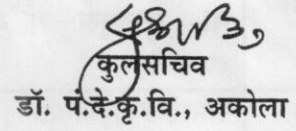 कुलसचिव
डॉ. पं.दे.कृ.वि., अकोला